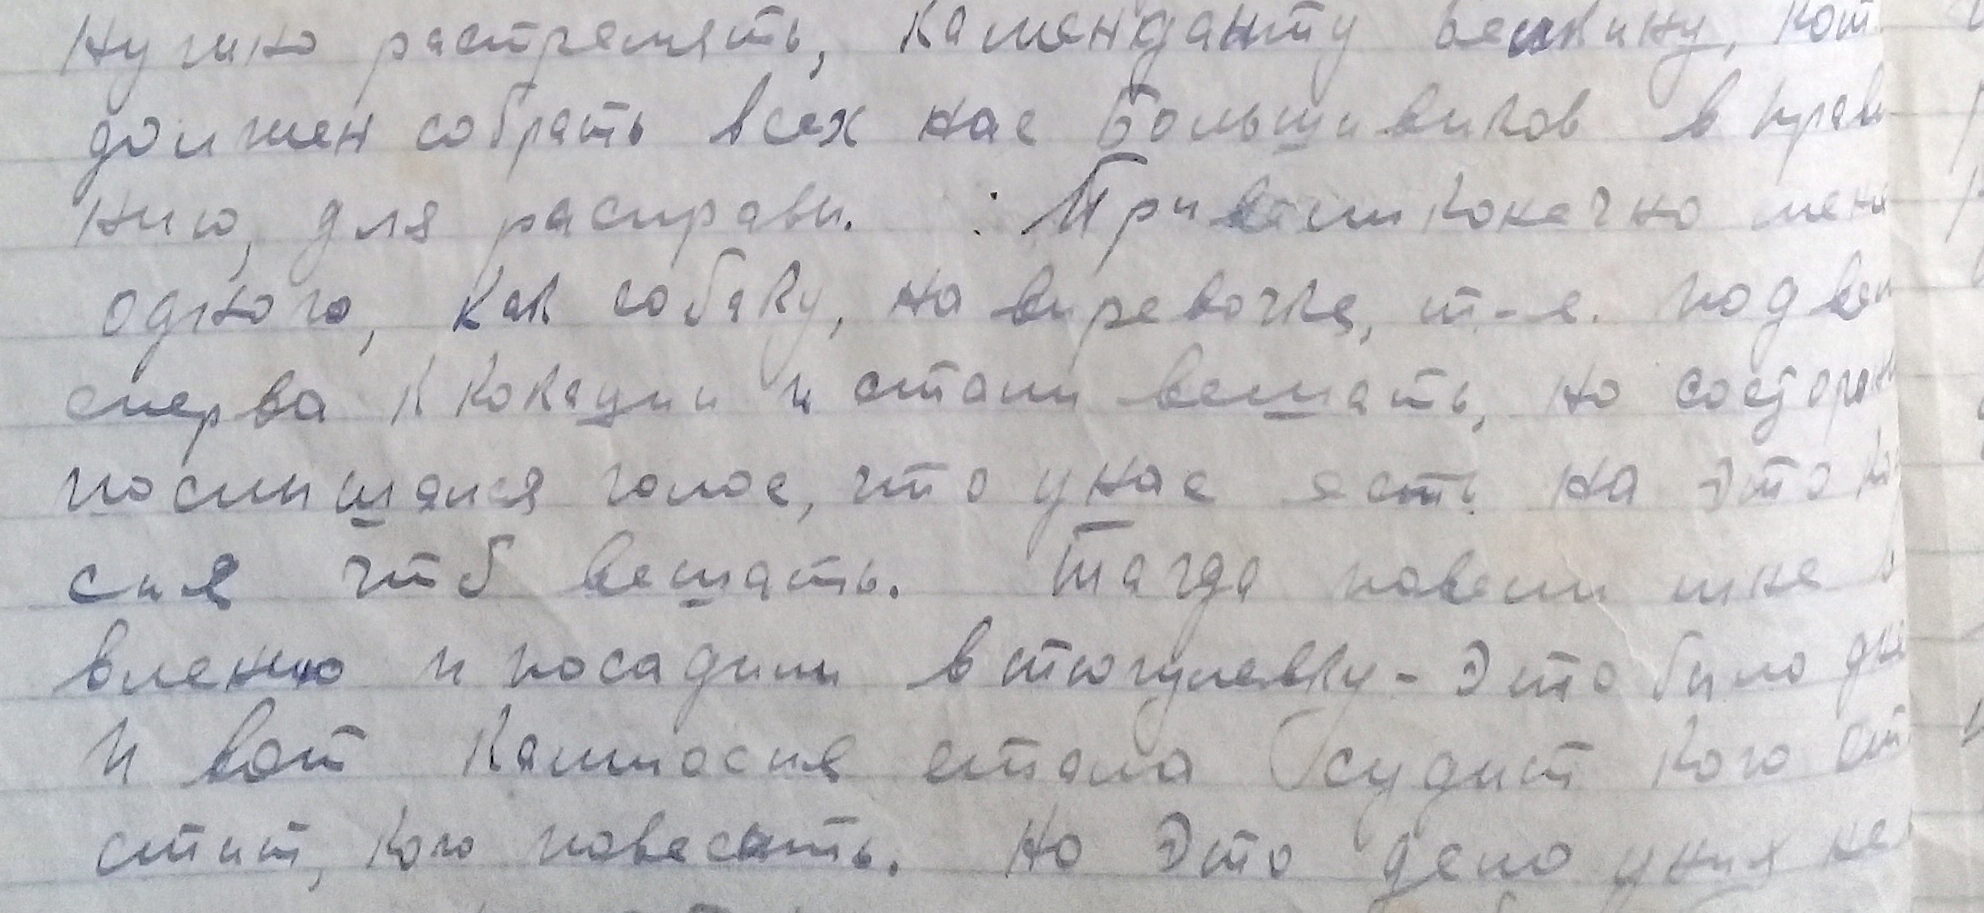 нужно растрелять, Каменданту Вешкину, кот.
должен собрать всех нас Большивиков в Прав
нию, для расправи. : Привели конечно меня
одного, как собаку, на виревочке, т-е. подвели
сперва к кокации и стали вешать, но состорони
послишался голос, что у нас есть на это ко-
сия чтоб вешать. Тагда повели мне
влению и посадили в стюгулевку - Это било дне
И вот Каммосия стала судит кого от
стит, кого повесить. Но Это дело у них не